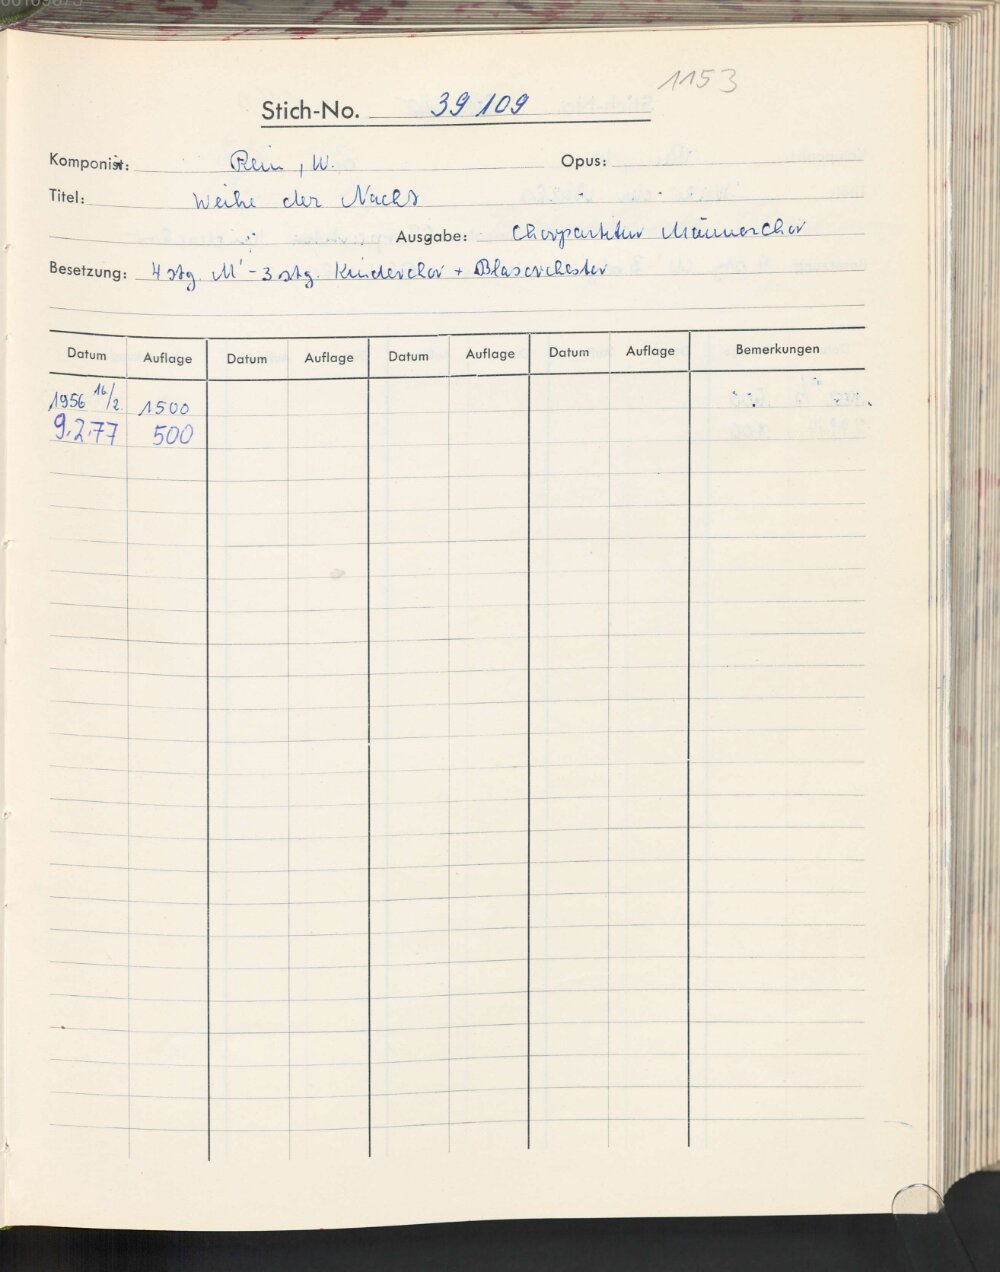 1153
Stich-No. 39109
Komponist: Rein, W. Opus:
Titel: Weihe der Nacht
Ausgabe: Chorpartitur Männerchor
Besetzung: 4 stg. M' - 3 stg. Kinderchor + Blasorchester
Datum Auflage Datum Auflage Datum Auflage Datum Auflage Bemerkungen
1956 16/2. 1500
9.2.77 500